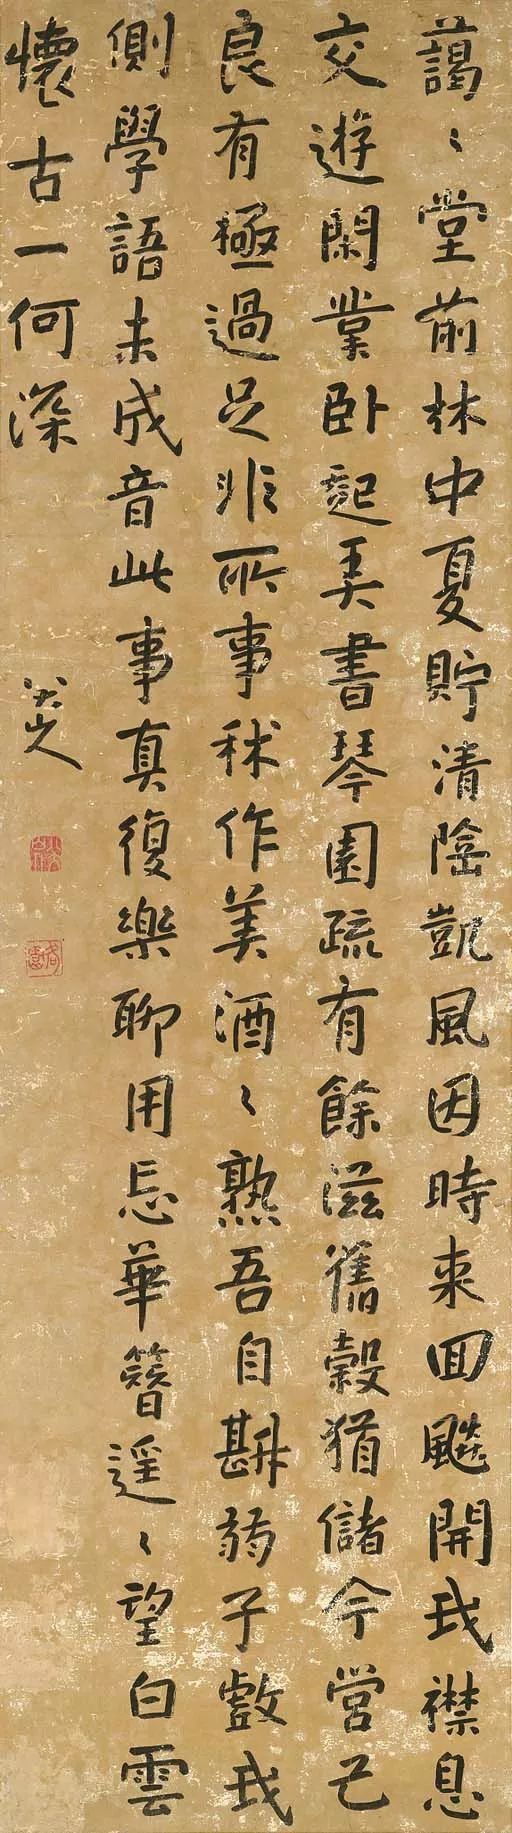 藹〻堂前林中夏貯清陰凱風因時來回飈開我襟息
交遊閑業臥起弄書琴園蔬有餘滋舊穀猶儲今營己
良有極過足非所事秫作美酒〻熟吾自斟弱子戲我
側學語未成音此事真復樂聊用忘華簪遥〻望白雲
懷古一何深
八大山人